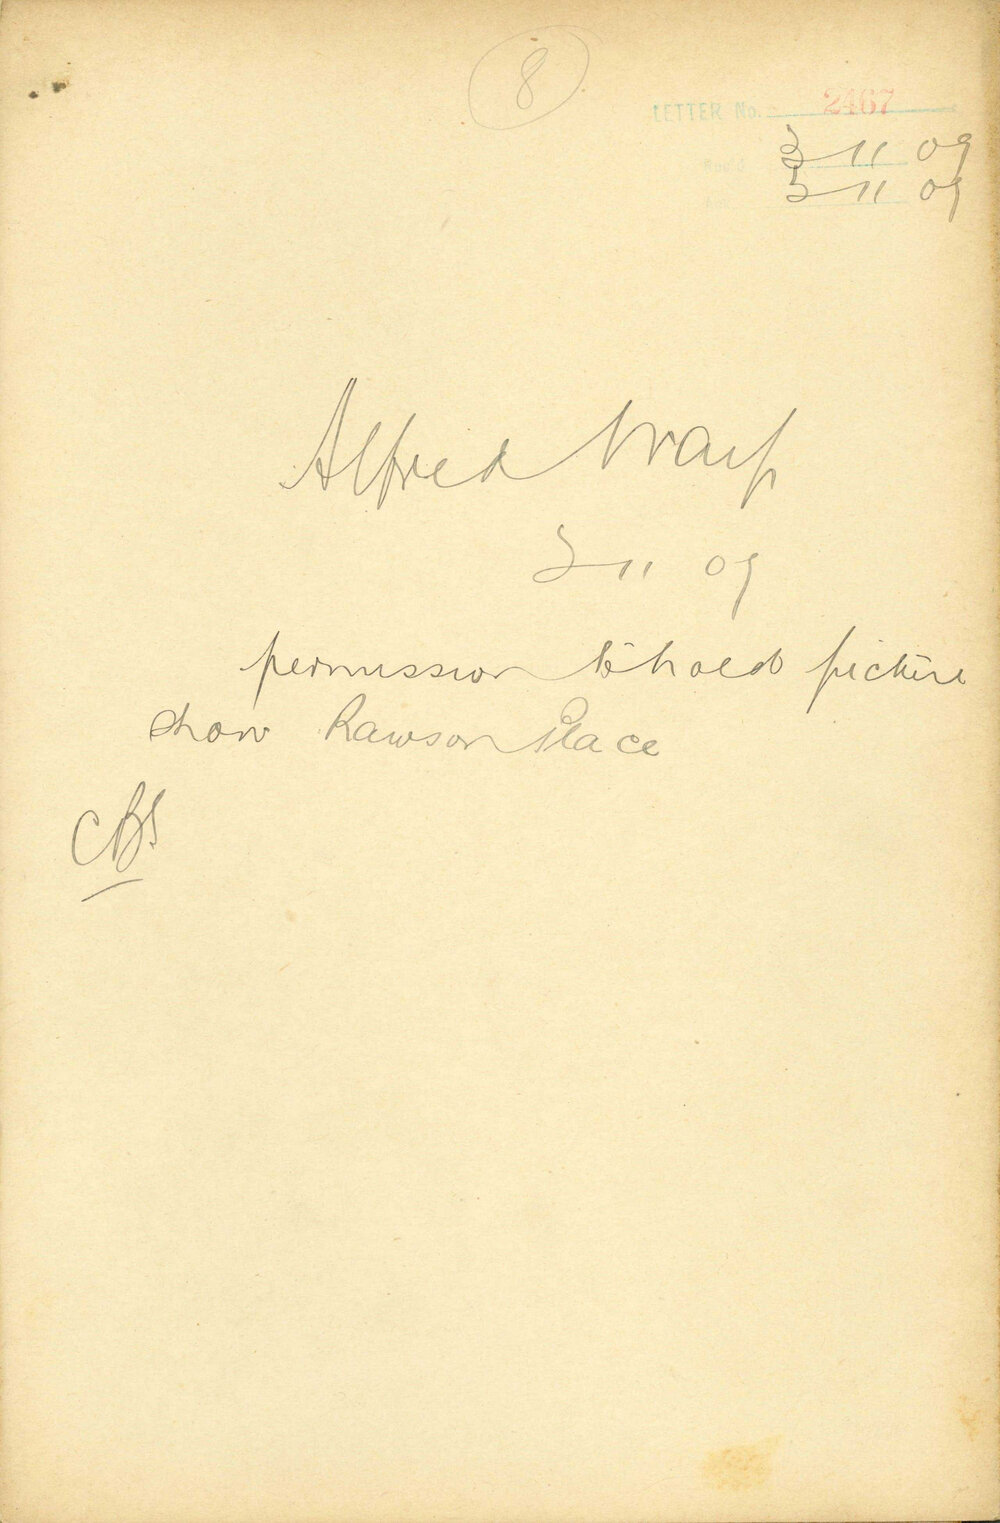 8
LETTER No. 2467
Rec'd 3 11 09
5 11 09
Alfred Warp
3 11 09
permission to hold picture
show Rawson Place
CBS